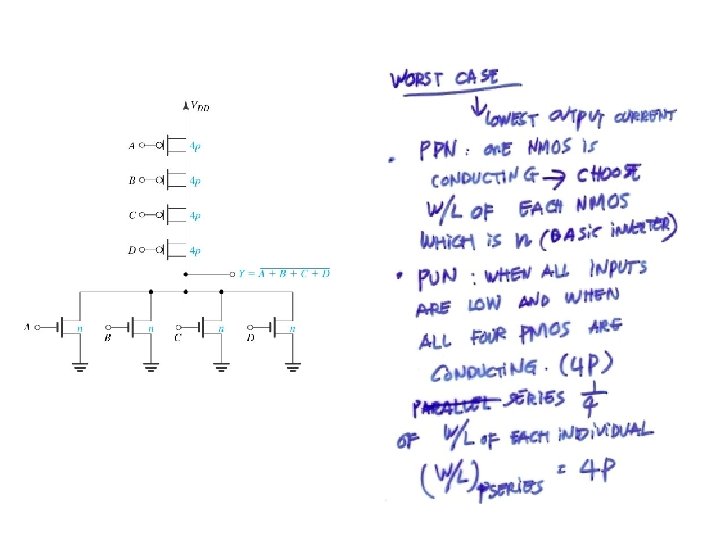 V_DD
A 4p
B 4p
C 4p
D 4p
Y = \overline{A + B + C + D}
A n
B n
C n
D n
WORST CASE
↓ LOWEST OUTPUT CURRENT
• PPN : ONE NMOS IS
CONDUCTING → CHOOSE
W/L OF EACH NMOS
WHICH IS n (BASIC INVERTER)
• PUN : WHEN ALL INPUTS
ARE LOW AND WHEN
ALL FOUR PMOS ARE
CONDUCTING. (4P)
PARALLEL SERIES 1/4
OF W/L OF EACH INDIVIDUAL
(W/L)PSERIES = 4P